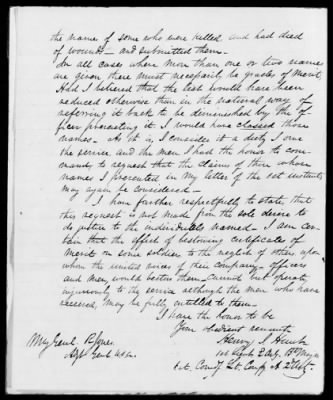 the names of some who were killed, and had died
of wounds — and submitted them —
In all cases where more than one or two names
are given there must necessarily be grades of Merit
Had I believed that the list would have been
reduced otherwise than in the natural way of
referring it back to be diminished by the of-
ficer presenting it. I would have classed those
names — As it is, I consider it a duty I owe
the service, and the men I had the honor to com-
mand, to request that the claims of those whose
names I presented in my letter of the 1st instant
may again be considered —
I have further respectfully to state that
this request is not made from the sole desire to
do justice to the individuals named. I am cer-
tain that the effect of bestowing certificates of
Merit on some soldiers to the neglect of others upon
whom the united voices of their company — officers
and men, would bestow them, cannot but operate
injuriously to the service although the men who have
received, may be fully entitled to them —
I have the honor to be
Your obedient servant
Henry J. Hunt
1st Lieut 2 Arty. Bvt Major
Genl. R Jones
Adjt Genl U.S.A.